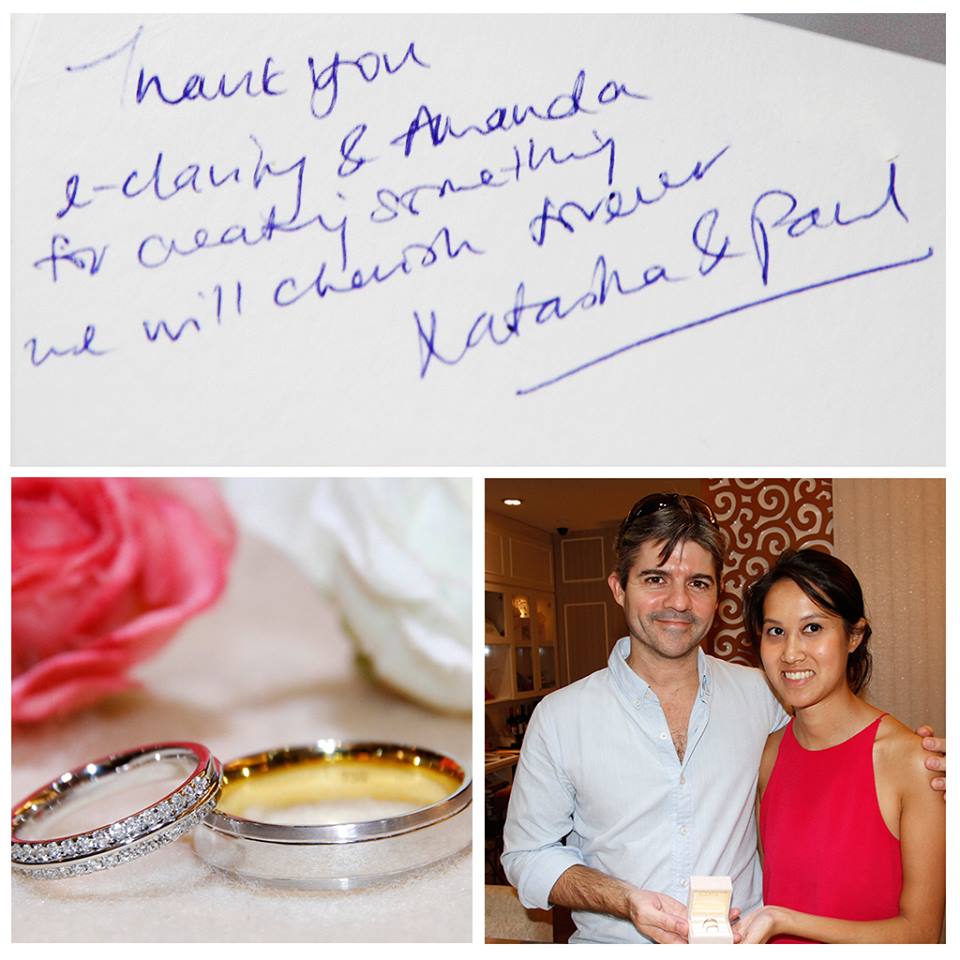 Thank you
e-clarity & Amanda
for creating something
we will cherish forever
Natasha & Paul